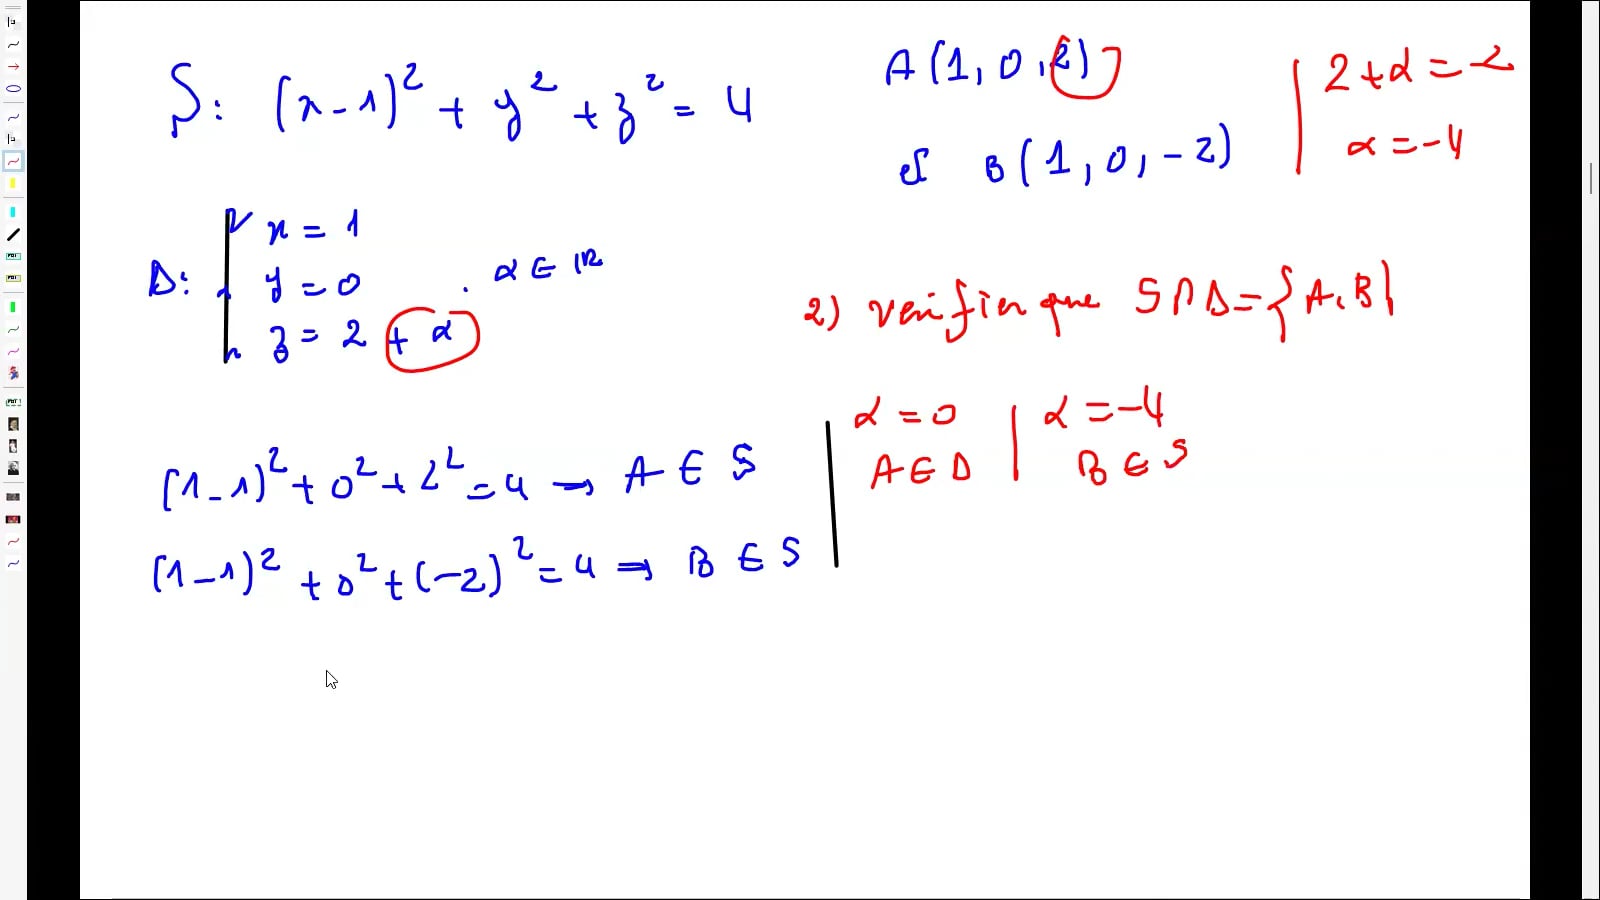 S: (x-1)² + y² + z² = 4
A(1, 0, 2)
et B(1, 0, -2)
2+α = -2
α = -4
D: { x = 1
y = 0 . α ∈ ℝ
z = 2 + α
2) Verifier que S∩D = {A, B}
α = 0 | α = -4
A ∈ D | B ∈ S
(1-1)² + 0² + 2² = 4 → A ∈ S
(1-1)² + 0² + (-2)² = 4 ⇒ B ∈ S